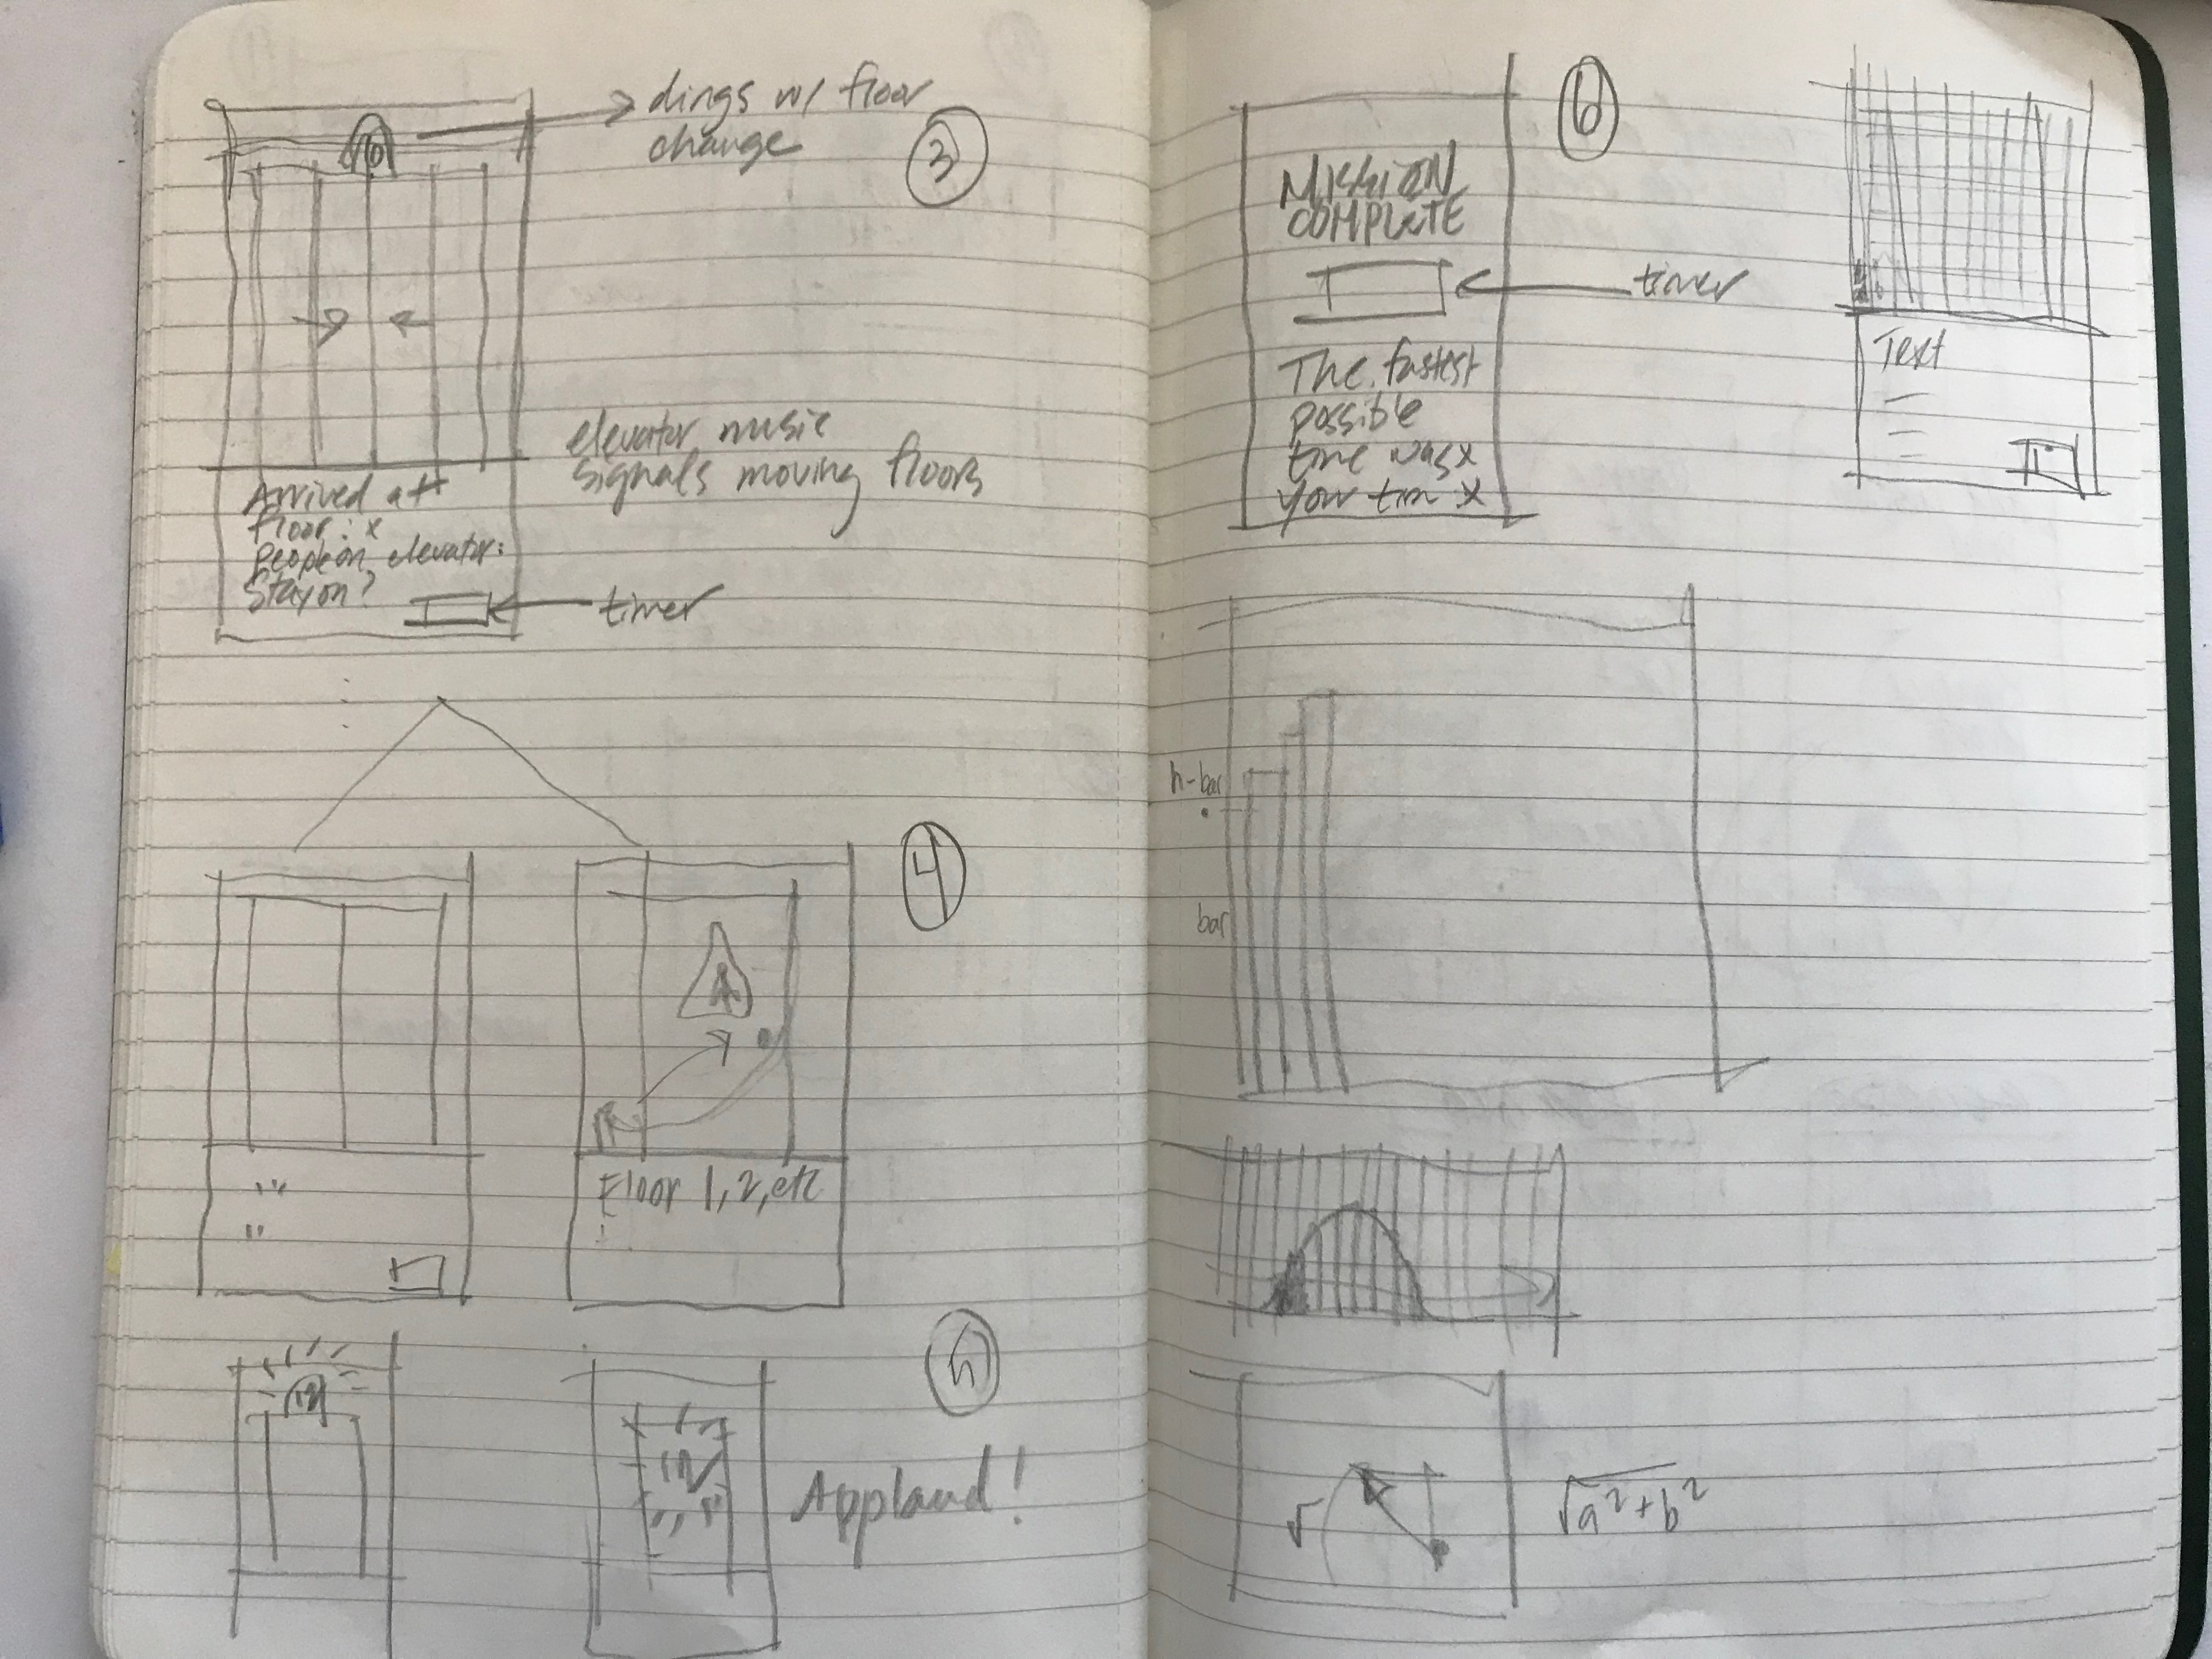 dings w/ floor
change
3
elevator music
signals moving floors
Arrived at
floor: x
People on elevator:
Stay on?
timer
4
" "
"
Floor 1, 2, etc
:
5
12
12
Applaud!
6
MISSION
COMPLETE
timer
The fastest
possible
time was x
your tim : x
Text
h-bar
bar
√
√a²+b²